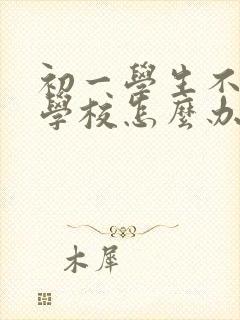 初一學生不
學校怎麼办
木犀